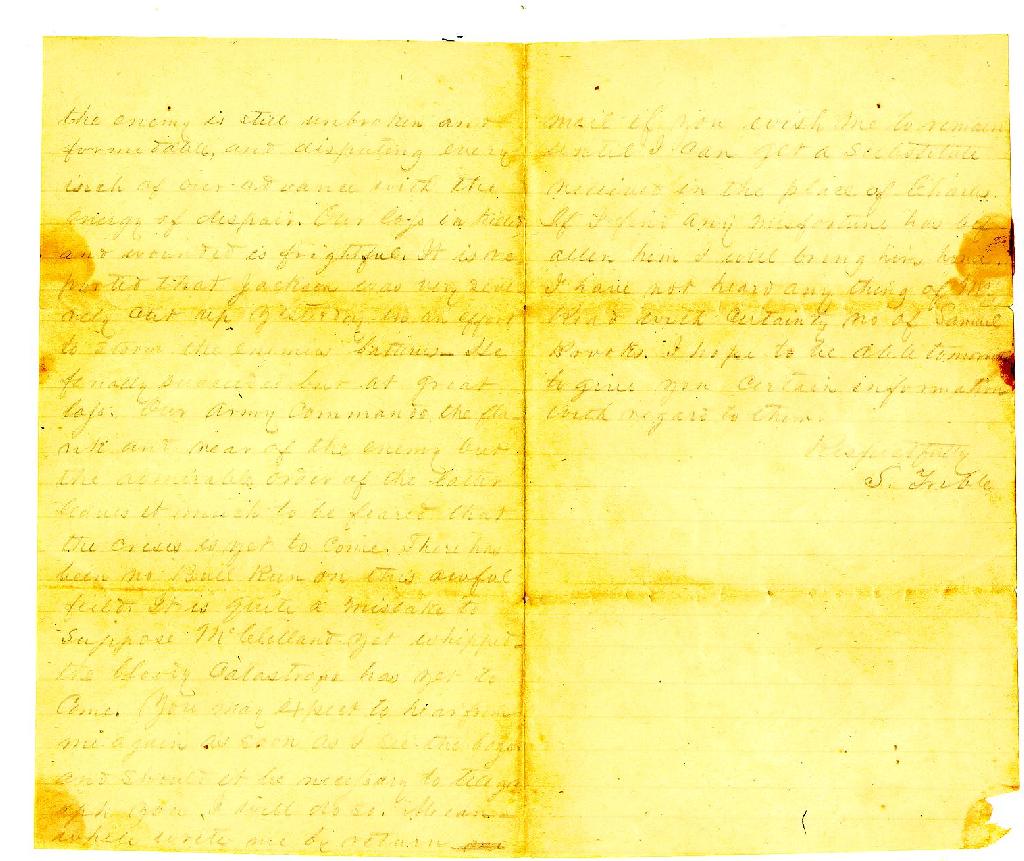 the enemy is still unbroken and
formidable, and disputing every
inch of our advance with the
energy of despair. Our loss in killed
and wounded is frightful. It is re
ported that Jackson was very seve
rely cut up yesterday in an effort
to storm the enemies batteries. He
finally succeeded but at great
loss. Our Army Commands the fla
nk and rear of the enemy but
the admirable order of the latter
leaves it much to be feared that
the crisis is yet to come. There has
been no Bull Run on this awful
field. It is quite a mistake to
suppose McClelland yet whipped
the bloody Catastrope has yet to
Come. You may expect to hear from
me again as soon as I see the boys
and should it be necessary to telegr
aph you I will do so. Mean-
while write me by return
mail if you wish me to remain
until I can get a Substitute
received in the place of Charles.
If I find any misfortune has bef
allen him I will bring him home.
I have not heard any thing of
with Certainty no of Samuel
Brooks. I hope to be able tomorrow
to give you Certain information
with regard to them.
Respectfully
S. Trible